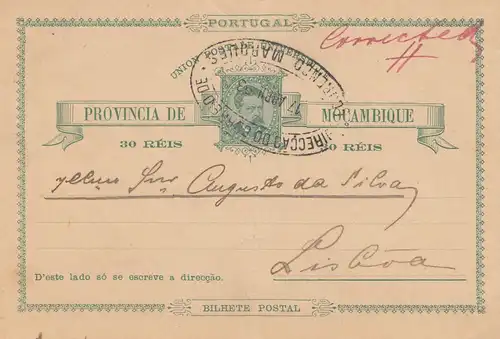 PORTUGAL
UNION POSTALE UNIVERSELLE
Correcte
PROVINCIA DE MOÇAMBIQUE
30 RÉIS 30 RÉIS
DIRECÇÃO DO CORREIO DE LOURENÇO MARQUES
17
Illmo Snr Augusto da Silva
Lisbôa
D'este lado só se escreve a direcção.
BILHETE POSTAL